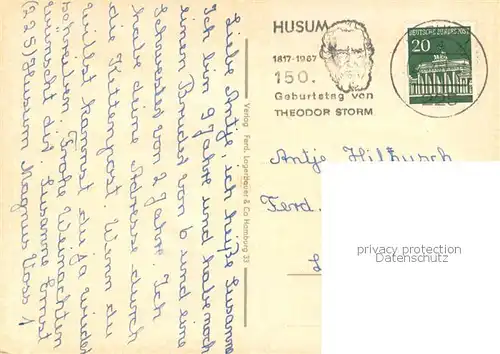 Liebe Antje, ich heiße Susanne
Ich bin 9 Jahre und habe noch
einen Bruder von 6 und eine
Schwester von 2 Jahre. Ich
habe deine Adresse durch
die Kettenpost. Wenn du
willst kannst du ja wieder
schreiben. Frohe Weihnachten
wünscht dir Susanne Ernst
(225) Husum Magnus Voss 1
Verlag Ferd. Lagerbauer & Co Hamburg 33
HUSUM
1817-1967
150.
Geburtstag von
THEODOR STORM
DEUTSCHE BUNDESPOST
20
Antje
Ferd.
privacy protection
AnsichtskartenCenter.de